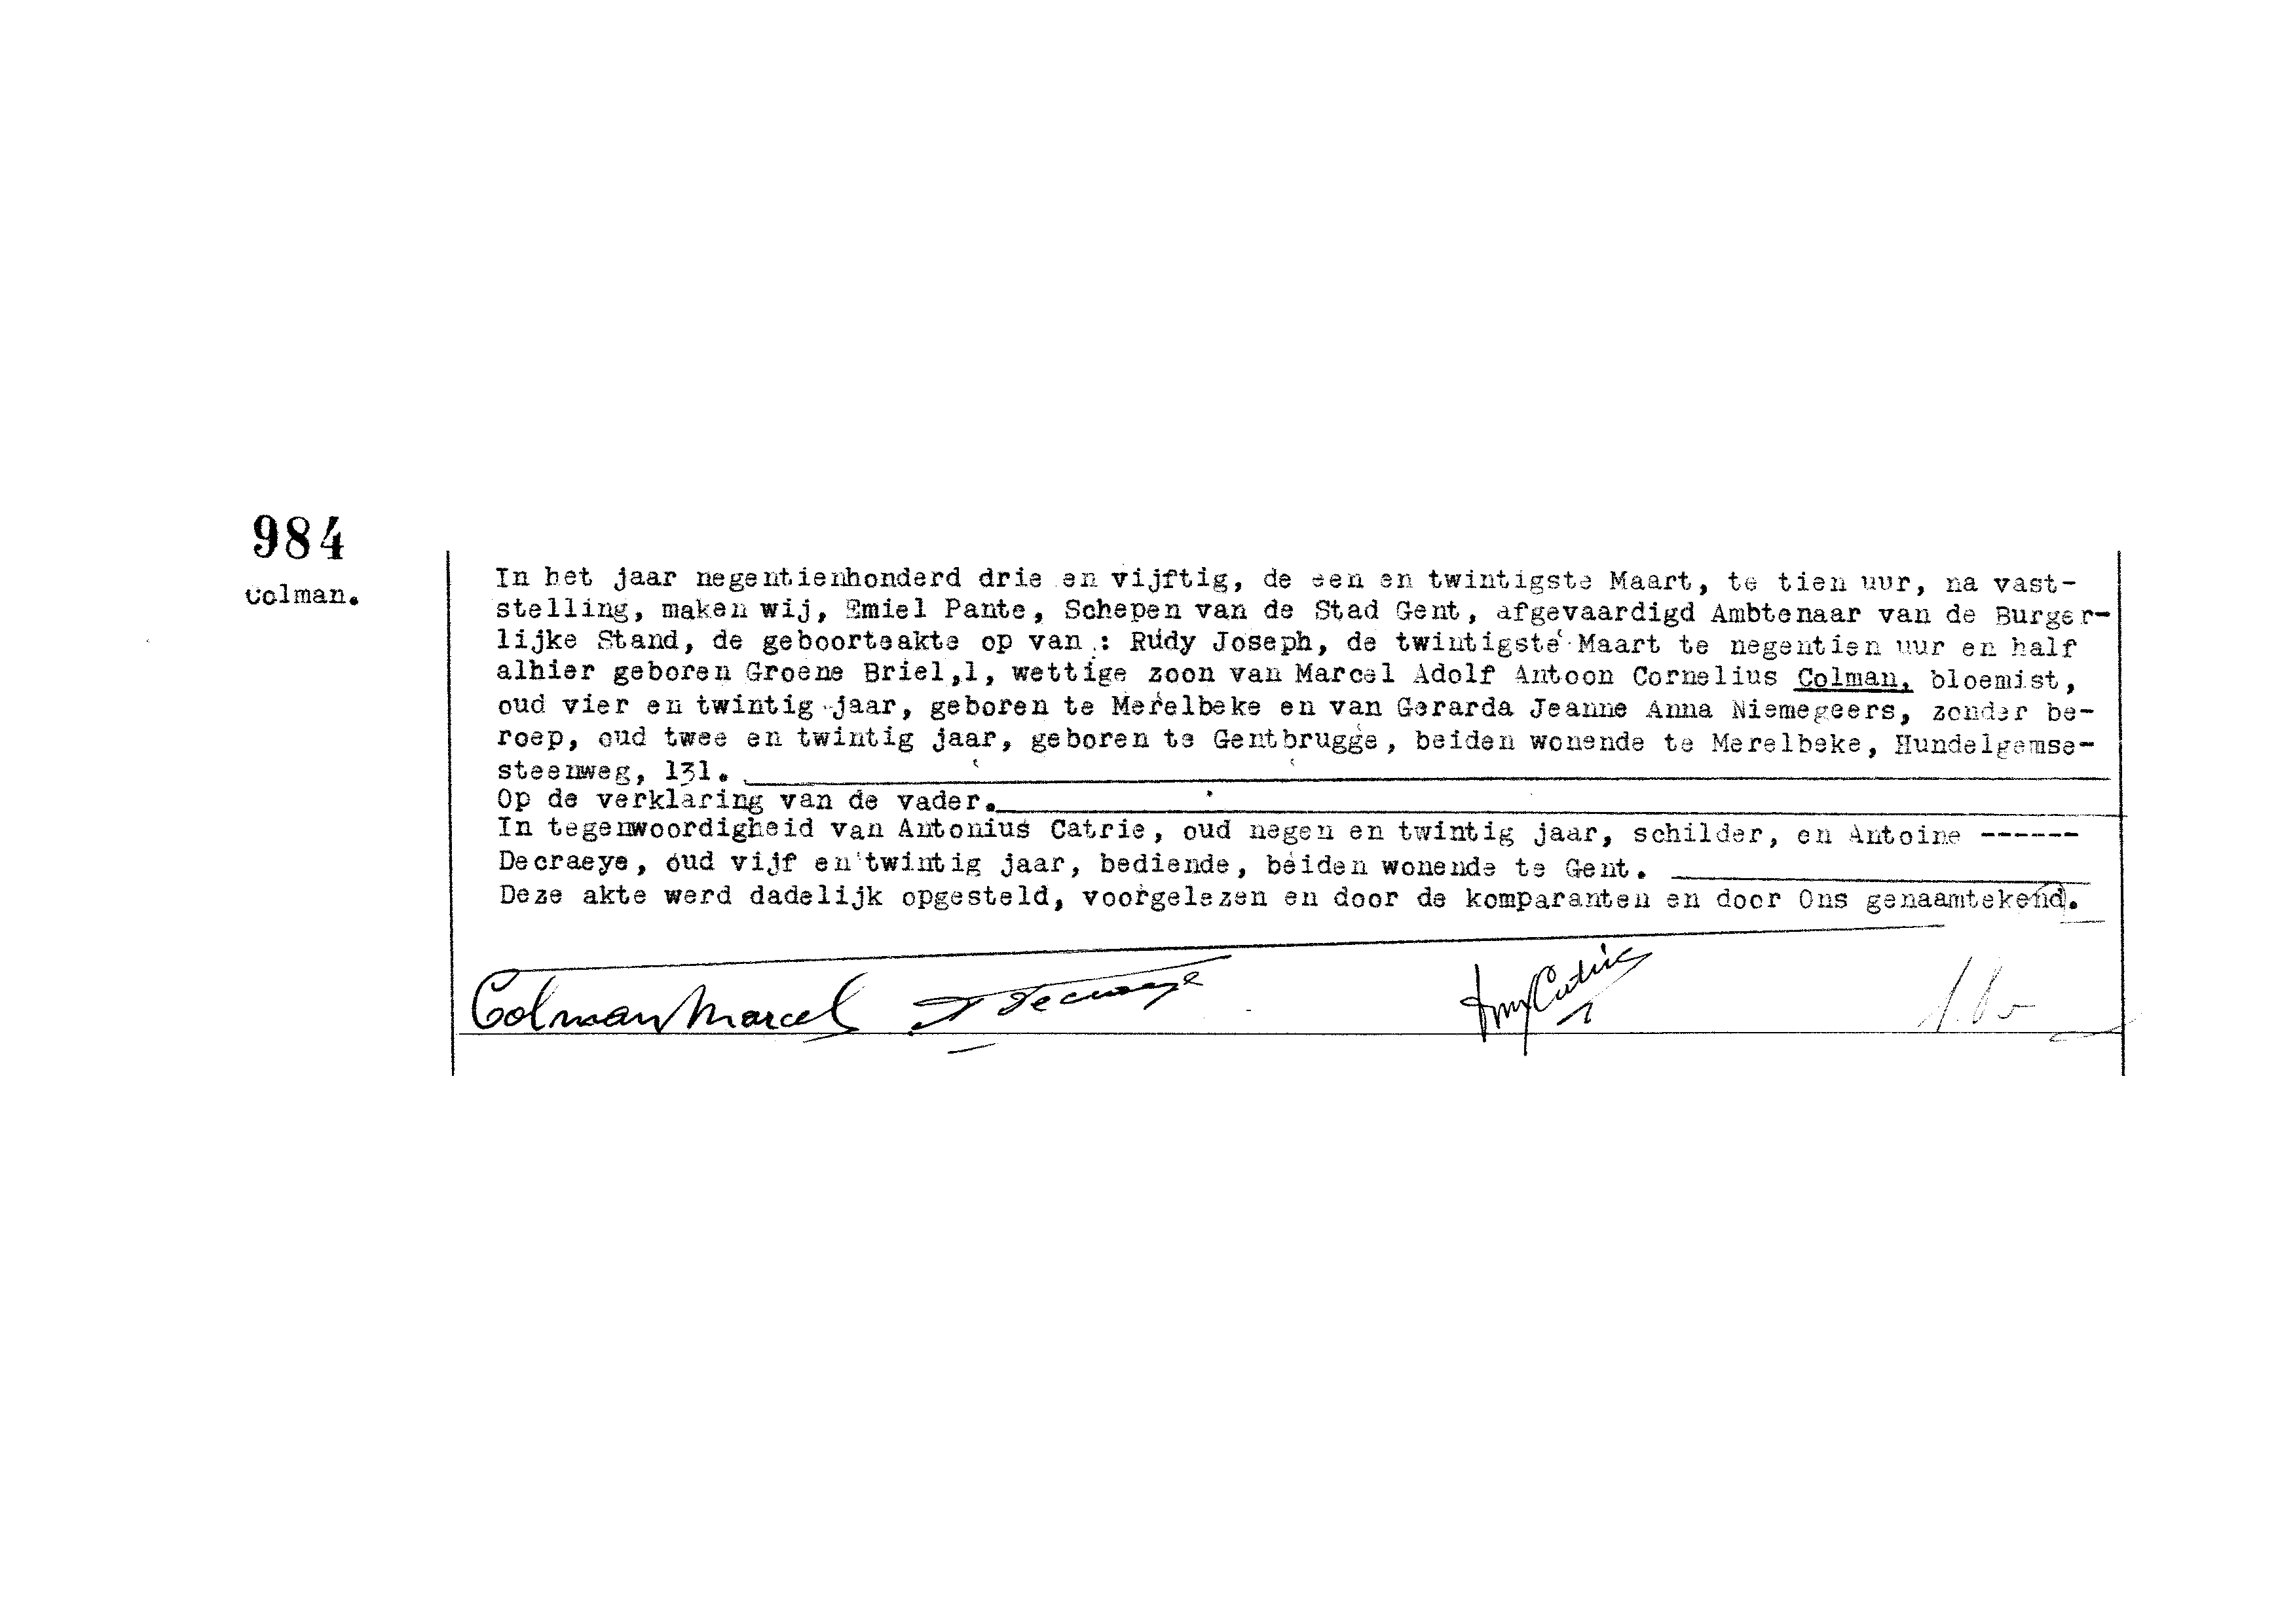 984
Colman.
In het jaar negentienhonderd drie en vijftig, de een en twintigste Maart, te tien uur, na vast-
stelling, maken wij, Emiel Pante, Schepen van de Stad Gent, afgevaardigd Ambtenaar van de Burger-
lijke Stand, de geboorteakte op van : Rudy Joseph, de twintigste Maart te negentien uur en half
alhier geboren Groene Briel,1, wettige zoon van Marcel Adolf Antoon Cornelius Colman, bloemist,
oud vier en twintig jaar, geboren te Merelbeke en van Gerarda Jeanne Anna Niemegeers, zonder be-
roep, oud twee en twintig jaar, geboren te Gentbrugge, beiden wonende te Merelbeke, Hundelgemse-
steenweg, 131.
Op de verklaring van de vader.
In tegenwoordigheid van Antonius Catrie, oud negen en twintig jaar, schilder, en Antoine ------
Decraeye, oud vijf en twintig jaar, bediende, beiden wonende te Gent.
Deze akte werd dadelijk opgesteld, voorgelezen en door de komparanten en door Ons genaamtekend.
Colman Marcel A Decraeye Catrie